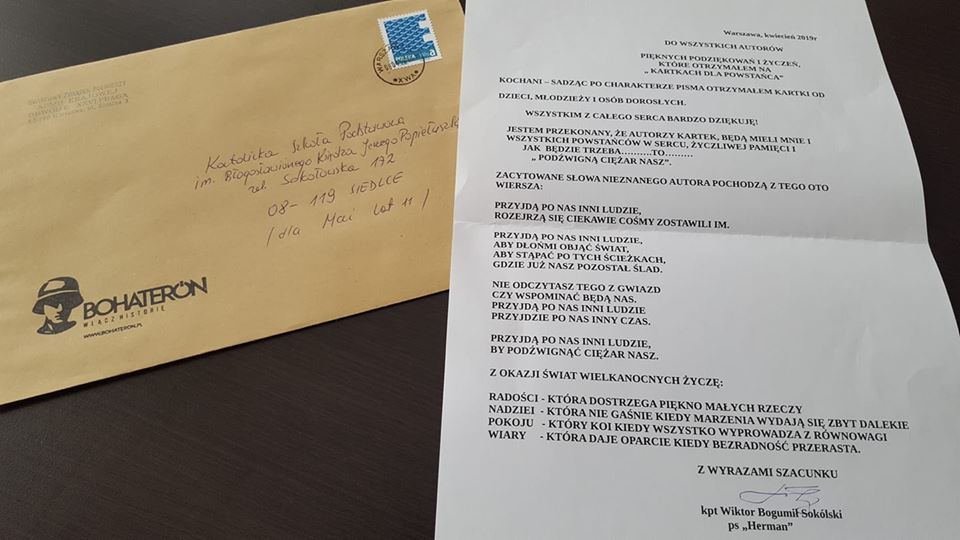 ŚWIATOWY ZWIĄZEK ŻOŁNIERZY
ARMII KRAJOWEJ
OBWÓD XXVI PRAGA
POLSKA
A
WARSZAWA
*XWA*
Katolicka Szkoła Podstawowa
im. Błogosławionego Księdza Jerzego Popiełuszki
ul. Sokołowska 172
08-119 SIEDLCE
/dla Mai lat 11/
BOHATERON
WŁĄCZ HISTORIĘ
WWW.BOHATERON.PL
Warszawa, kwiecień 2019r
DO WSZYSTKICH AUTORÓW
PIĘKNYCH PODZIĘKOWAŃ I ŻYCZEŃ,
KTÓRE OTRZYMAŁEM NA
„ KARTKACH DLA POWSTAŃCA”
KOCHANI – SADZĄC PO CHARAKTERZE PISMA OTRZYMAŁEM KARTKI OD
DZIECI, MŁODZIEŻY I OSÓB DOROSŁYCH.
WSZYSTKIM Z CAŁEGO SERCA BARDZO DZIĘKUJĘ!
JESTEM PRZEKONANY, ŻE AUTORZY KARTEK, BĘDĄ MIELI MNIE I
WSZYSTKICH POWSTAŃCÓW W SERCU, ŻYCZLIWEJ PAMIĘCI I
JAK BĘDZIE TRZEBA………TO………
„ PODŹWIGNĄ CIĘŻAR NASZ”.
ZACYTOWANE SŁOWA NIEZNANEGO AUTORA POCHODZĄ Z TEGO OTO
WIERSZA:
PRZYJDĄ PO NAS INNI LUDZIE,
ROZEJRZĄ SIĘ CIEKAWIE COŚMY ZOSTAWILI IM.
PRZYJDĄ PO NAS INNI LUDZIE,
ABY DŁOŃMI OBJĄĆ ŚWIAT,
ABY STĄPAĆ PO TYCH ŚCIEŻKACH,
GDZIE JUŻ NASZ POZOSTAŁ ŚLAD.
NIE ODCZYTASZ TEGO Z GWIAZD
CZY WSPOMINAĆ BĘDĄ NAS.
PRZYJDĄ PO NAS INNI LUDZIE
PRZYJDZIE PO NAS INNY CZAS.
PRZYJDĄ PO NAS INNI LUDZIE,
BY PODŹWIGNĄĆ CIĘŻAR NASZ.
Z OKAZJI ŚWIAT WIELKANOCNYCH ŻYCZĘ:
RADOŚCI - KTÓRA DOSTRZEGA PIĘKNO MAŁYCH RZECZY
NADZIEI - KTÓRA NIE GAŚNIE KIEDY MARZENIA WYDAJĄ SIĘ ZBYT DALEKIE
POKOJU - KTÓRY KOI KIEDY WSZYSTKO WYPROWADZA Z RÓWNOWAGI
WIARY - KTÓRA DAJE OPARCIE KIEDY BEZRADNOŚĆ PRZERASTA.
Z WYRAZAMI SZACUNKU
kpt Wiktor Bogumił Sokólski
ps „Herman”